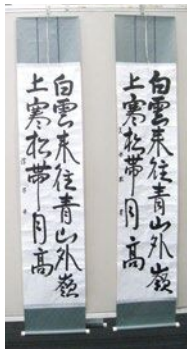 白雲来往青山外嶺
上寒松帶月高
白雲来往青山外嶺
上寒松帶月高